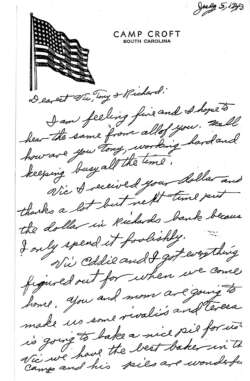 July 5, 1943
CAMP CROFT
SOUTH CAROLINA
Dearest Vic, Tony & Richard:
I am feeling fine and I hope to
hear the same from all of you. Well
how are you Tony, working hard and
keeping busy all the time.
Vic I received your dollar and
thanks a lot but next time put
the dollar in Richards bank because
I only spend it foolishly.
Vic Eddie and I got everything
figured out for when we come
home. You and mom are going to
make us some raviolis and Teresa
is going to bake a nice pie for us.
Vic we have the best baker in the
Camp and his pies are wonderful